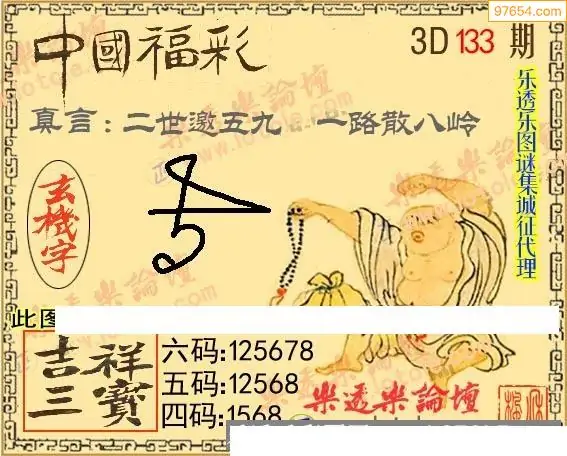 97654.com
中國福彩
3D 133 期
真言：二世邀五九 一路散八岭
玄機字
乐透乐图谜集城征代理
此图
吉祥三寶
六码:125678
五码:12568
四码:1568
樂透樂論壇